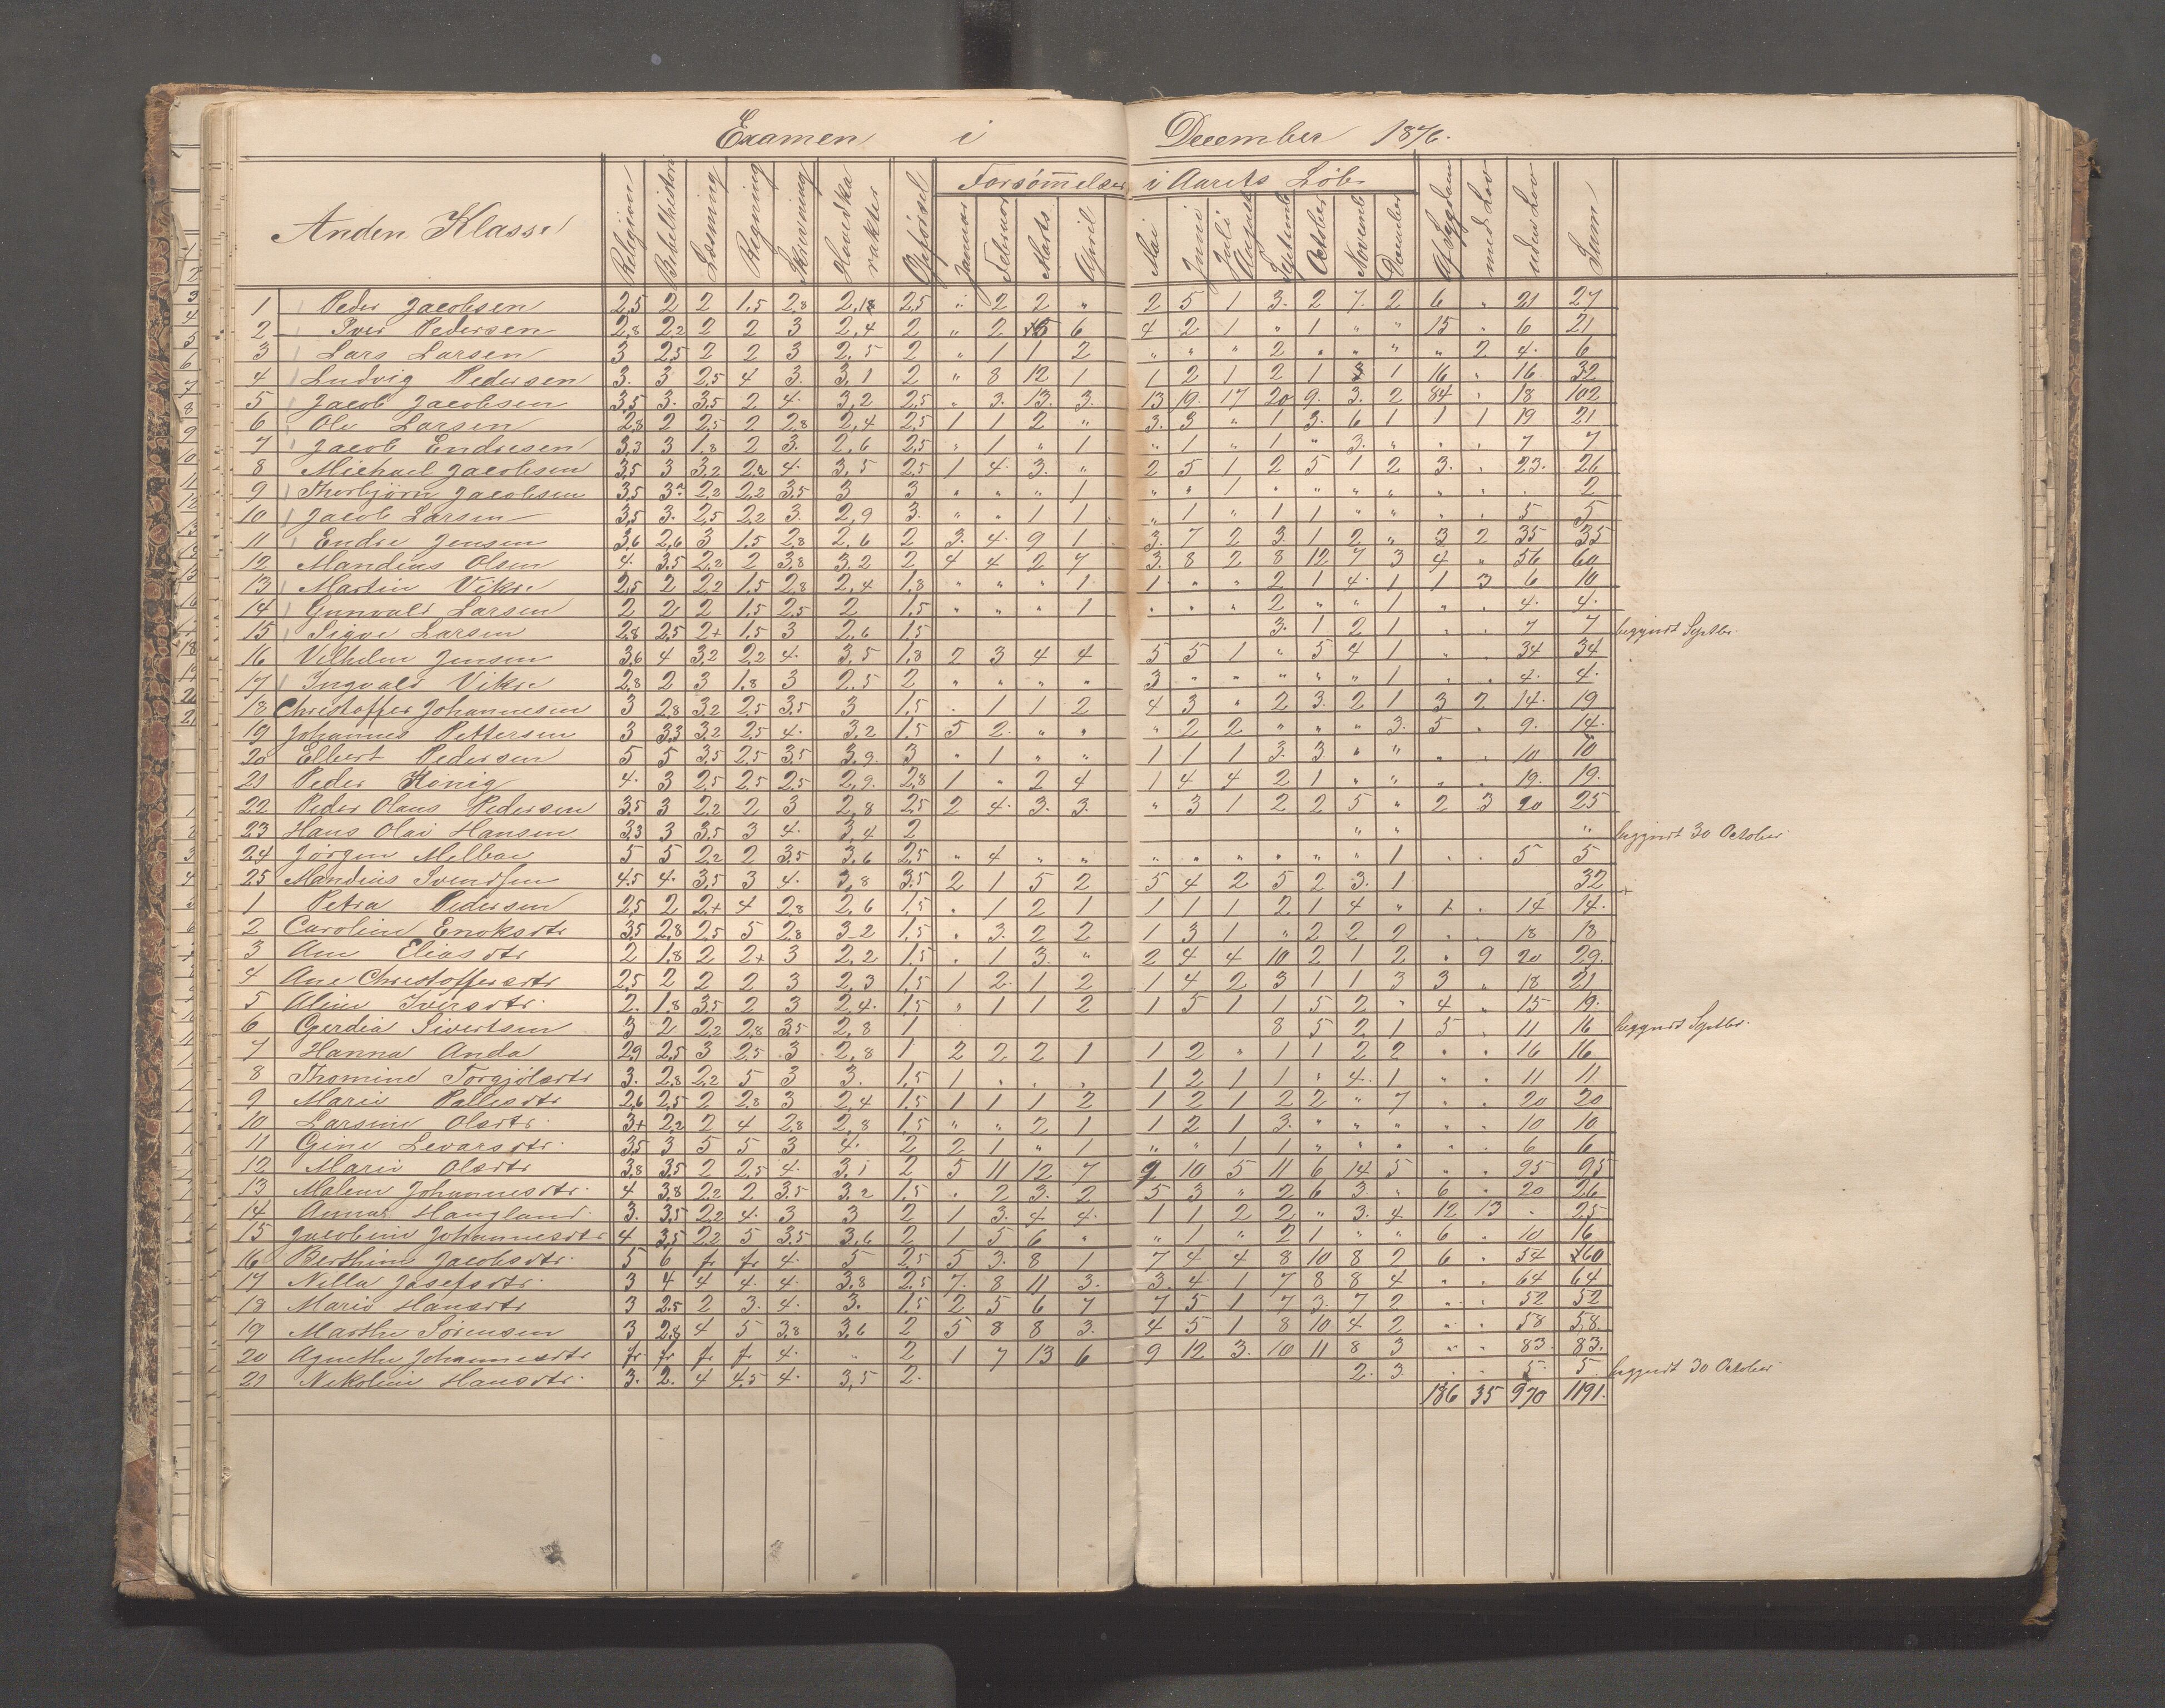 Examen i December 1876.
Anden Klasse Religion Bibelhistorie Læsning Regning Skrivning Hovedkarakter Opførsel Forsømmelser i Aarets Løb Januar Februar Marts April Mai Juni Juli August Septemb October Novemb December Af Sygdom med Lov uden Lov Sum
1 Peder Jacobsen 2,5 2 2 1.5 2,8 2,18 2,5 " 2 2 " 2 5 1 3. 2 7. 2 6 " 21 27
2 Iver Pedersen 2,8 2,2 2 2 3 2,4 2 " 2 5 6 4 2 1 " 1 " " 15 " 6 21
3 Lars Larsen 3 2,5 2 2 3 2,5 2 " 1 1 2 " " " 2 " " " " 2 4. 6
4 Ludvig Pedersen 3. 3 2,5 4 3. 3,1 2 " 8 12 1 1 2 1 2 1 3 1 16 " 16. 32
5 Jacob Jacobsen 3,5 3. 3,5 2 4. 3,2 2,5 " 3. 13. 3. 13 19. 17 20 9. 3. 2 84 . 18 102
6 Ole Larsen 2,8 2 2,5 2 2,8 2,4 2,5 1 1 2 " 3. 3 " 1 3. 6 1 1 1 19 21
7 Jacob Endresen 3,3 3 1.8 2 3. 2,6 2,5 " 1 " 1 " 1 " 1 " 3. " " . 7 7
8 Michael Jacobsen 3,5 3 3,2 2,2 4. 3,5 2,5 1 4. 3. " 2 5 1 2 5 1 2 3. . 23. 26
9 Thorbjørn Jacobsen 3,5 3. 2,2 2,2 3,5 3 3 " " " 1 " " 1 " " " " " . . 2
10 Jacob Larsen 3,5 3. 2,5 2,2 3. 2,9 3. " " 1 1 " 1 " 1 1 " " " . 5 5
11 Endre Jensen 3,6 2,6 3 1.5 2,8 2,6 2 3. 4. 9 1 3. 7 2 3. 1 2 " 3 2 35 35
12 Mandius Olsen 4. 3.5 2,2 2 3,8 3.2 2 4 4 2 7 3. 8 2 8 12 7 3 4 " 56 60
13 Martin Vikse 2,5 2 2,2 1.5 2,8 2,4 1,8 " " " 1 1 " " 2 1 4. 1 1 3 6 10
14 Gunvald Larsen 2 2 2 1.5 2,5 2 1,5 " " " 1 " " " 2 " " 1 " . 4. 4.
15 Sigve Larsen 2,8 2,5 2+ 1,5 3 2,6 1,5 3. 1 2 1 . . 7 7 begyndt Septbr.
16 Vilhelm Jensen 3,6 4 3,2 2,2 4. 3,5 1,8 2 3 4 4 5 5 1 " 5 4 1 " . 34 34
17 Ingvald Vikse 2,8 2 3 1.8 3 2,5 2 " " " " 3 " " " " " 1 . . 4. 4.
18 Christoffer Johannesen 3 2,8 3,2 2,5 3,5 3 1,5 . 1 1 2 4 3 " 2 3. 2 1 3 2 14. 19
19 Johannes Pettersen 3 3,3 3,2 2,5 4. 3,2 1,5 5 2. " " " 2 2 " " " 3. 5 . 9. 14.
20 Elbert Pedersen 5 5 3,5 2,5 3,5 3,9. 3 " 1 " " 1 1 1 3. 3 " " " . 10 10
21 Peder König 4. 3 2,5 2,5 2,5 2,9. 2,8 1 " 2 4 1 4 4 2 1 " " . . 19. 19.
22 Peder Olaus Pedersen 3,5 3 2,2 2 3 2,8 2,5 2 4. 3. 3. " 3 1 2 2 5 " 2 3 20 25
23 Hans Olai Hansen 3,3 3 3,5 3 4. 3,4 2 " " " begyndt 30 October
24 Jørgen Melbøe 5 5 2,2 2 3,5 3,6 2,5 " 4 " " " " " " " " 1 . . 5 5
25 Mandius Svendsen 4.5 4. 3,5 3 4. 3,8 3.5 2 1 5 2 5 4 2 5 2 3. 1 32
1 Petra Pedersen 2,5 2 2+ 4 2,8 2,6 1,5 . 1 2 1 1 1 1 2 1 4 " 1 . 14 14.
2 Caroline Enoksdtr 3,5 2,8 2,5 5 2,8 3-2 1,5 . 3. 2 2 1 3 1 " 2 2 2 " . 18 18
3 Ane Eliasdtr 2 1.8 2 2+ 3 2,2 1,5 . 1 3. " 2 4 4 10 2 1 2 " 9 20 29.
4 Ane Christoffersdtr 2,5 2 2 2 3 2,3 1,5 1 2. 1 2 1 4 2 3 1 1 3 3 " 18 21
5 Aline Iversdtr. 2. 1.8 3,5 2 3 2,4. 1,5 " 1 1 2 1 5 1 1 5 2 " 4 " 15 19.
6 Gerdia Sivertsen 3 2 2,2 2,8 3,5 2,8 1 8 5 2 1 5 . 11 16 begyndt Septbr.
7 Hanna Anda 2,9 2,5 3 2,5 3 2,8 1 2 2 2 1 1 2 " 1 1 2 2 " " 16 16
8 Thomine Torgjølsdtr 3. 2,8 2,2 5 3 3. 1,5 1 . . . 1 2 1 1 " 4. 1 " . 11 11
9 Marie Pallesdtr 2,6 2,5 2 2,8 3 2,4 1.5 1 1 1 2 1 2 1 2 2 " 7 " . 20 20
10 Larsine Olsdtr. 3+ 2,2 2 4 2,8 2,8 1.5 " " 2 1 1 2 1 3. " " " " . 10 10
11 Gine Levardsdtr. 3,5 3 5 5 3 4. 2 2 1 " 1 " " 1 1 " " " " . 6 6
12 Marie Olsdtr 3,8 3,5 2 2,5 4. 3,1 2 5 11 12 7 9 10 5 11 6 14 5 " . 95 95
13 Malene Johannesdtr. 4 3,8 2,2 2 3.5 3,2 1,5 . 2 3. 2 5 3 " 2 6 3. " 6 . 20 26
14 Anna Haugland. 3. 3,5 2,2 4. 3 3 2 1 3. 4 4. 1 1 2 2 " 3. 4 12 13 . 25
15 Jacobine Johannesdtr 4 3,5 2,2 5 3.5 3,6 2 1 5 6 " " 1 " 2 1 " " 6 . 10 16
16 Berthine Jacobsdtr. 5 6 fr fr 4. 5 2,5 5 3. 8 1 7 4 4 8 10 8 2 6 . 54 60
17 Nilla Josefsdtr. 3 4 4 4. 4. 3,8 2,5 7. 8 11 3. 3. 4 1 7 8 8 4 " . 64 64
18 Marie Hansdtr 3 2,5 2 3. 4. 3. 1.5 2 5 6 7 7 5 1 7 3. 7 2 " . 52 52
19 Marthe Sørensen 3 2,8 4 5 3,8 3,6 2 5 8 8 3. 4 5 1 8 10 4 2 " . 58 58.
20 Agnethe Johannesdtr fr. fr. fr fr 4. " 2 1 7 13 6 9 12 3. 10 11 8 3 " . 83 83.
21 Nikoline Hansdtr. 3. 2. 4 4,5 4. 3,5 2. 2. 3. . . 5. 5 begyndt 30 October
186 35 970 1191.